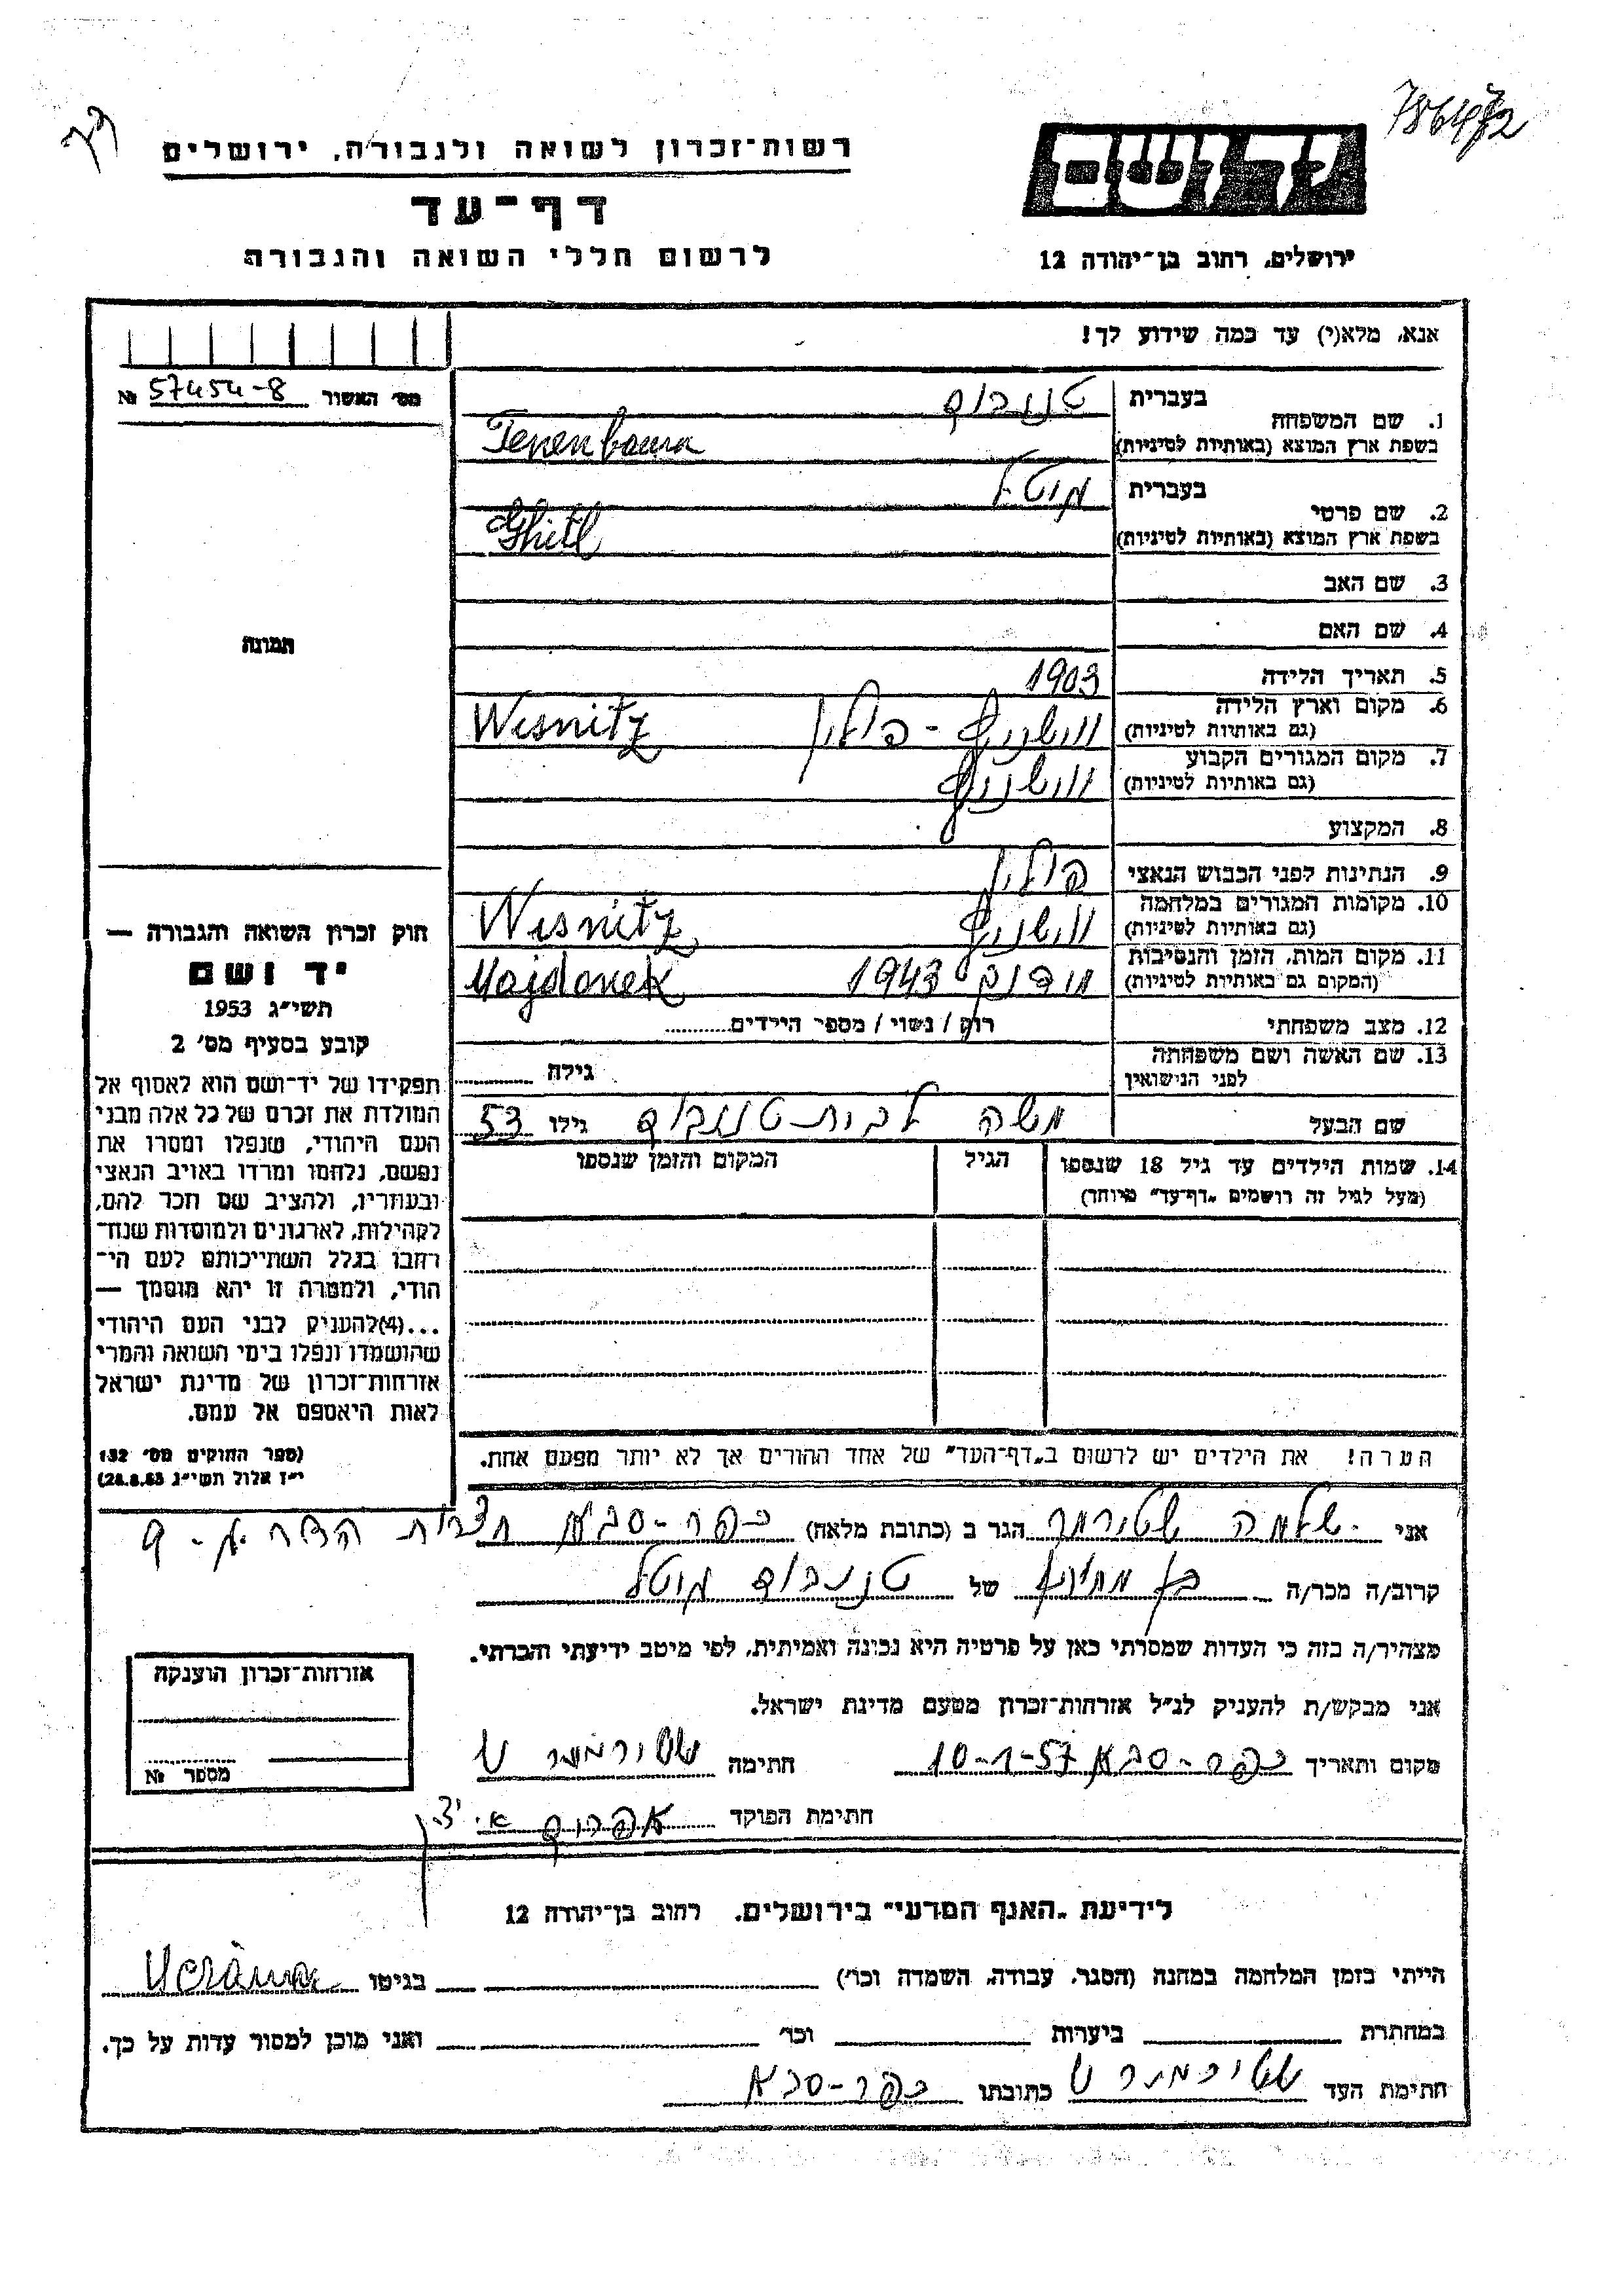 רשות־זכרון לשואה ולגבורה, ירושלים
דף־עד
לרשום חללי השואה והגבורה
יד ושם
ירושלים, רחוב בן־יהודה 12
אנא, מלא(י) עד כמה שידוע לך!
מס׳ האשור 57454-8 №
1. שם המשפחה בעברית טננבוים
בשפת ארץ המוצא (באותיות לטיניות) Tenenbaum
2. שם פרטי בעברית
בשפת ארץ המוצא (באותיות לטיניות)
3. שם האב
4. שם האם
5. תאריך הלידה 1903
6. מקום וארץ הלידה (גם באותיות לטיניות) פולין Wisnitz
7. מקום המגורים הקבוע (גם באותיות לטיניות)
8. המקצוע
9. הנתינות לפני הכבוש הנאצי פולין
10. מקומות המגורים במלחמה (גם באותיות לטיניות) Wisnitz
11. מקום המות, הזמן והנסיבות (המקום גם באותיות לטיניות) 1943 Majdanek
12. מצב משפחתי רוק / נשוי / מספר הילדים
13. שם האשה ושם משפחתה לפני הנישואין גילה
שם הבעל משה לבית טננבוים גילו 53
14. שמות הילדים עד גיל 18 שנספו הגיל המקום והזמן שנספו
(מעל לגיל זה רושמים „דף־עד״ מיוחד)
הערה! את הילדים יש לרשום ב„דף־העד״ של אחד ההורים אך לא יותר מפעם אחת.
תמונה
חוק זכרון השואה והגבורה —
יד ושם
תשי״ג 1953
קובע בסעיף מס׳ 2
תפקידו של יד־ושם הוא לאסוף אל
המולדת את זכרם של כל אלה מבני
העם היהודי, שנפלו ומסרו את
נפשם, נלחמו ומרדו באויב הנאצי
ובעוזריו, ולהציב שם וזכר להם,
לקהילות, לארגונים ולמוסדות שנח־
רבו בגלל השתייכותם לעם הי־
הודי, ולמטרה זו יהא מוסמך —
...(4) להעניק לבני העם היהודי
שהושמדו ונפלו בימי השואה והמרי
אזרחות־זכרון של מדינת ישראל
לאות היאספם אל עמם.
(ספר החוקים מס׳ 132
י״ז אלול תשי״ג 28.8.53)
אני שלמה הגר ב (כתובת מלאה) כפר-סבא
קרוב/ה מכר/ה של טננבוים
מצהיר/ה בזה כי העדות שמסרתי כאן על פרטיה היא נכונה ואמיתית, לפי מיטב ידיעתי והכרתי.
אני מבקש/ת להעניק לנ״ל אזרחות־זכרון מטעם מדינת ישראל.
מקום ותאריך כפר-סבא 10-1-57 חתימה
חתימת הפוקד
אזרחות־זכרון הוענקה
מספר №
לידיעת „האגף המדעי״ בירושלים, רחוב בן־יהודה 12
הייתי בזמן המלחמה במחנה (הסגר, עבודה, השמדה וכו׳) בגיטו
במחתרת ביערות וכו׳ ואני מוכן למסור עדות על כך.
חתימת העד כתובתו כפר-סבא